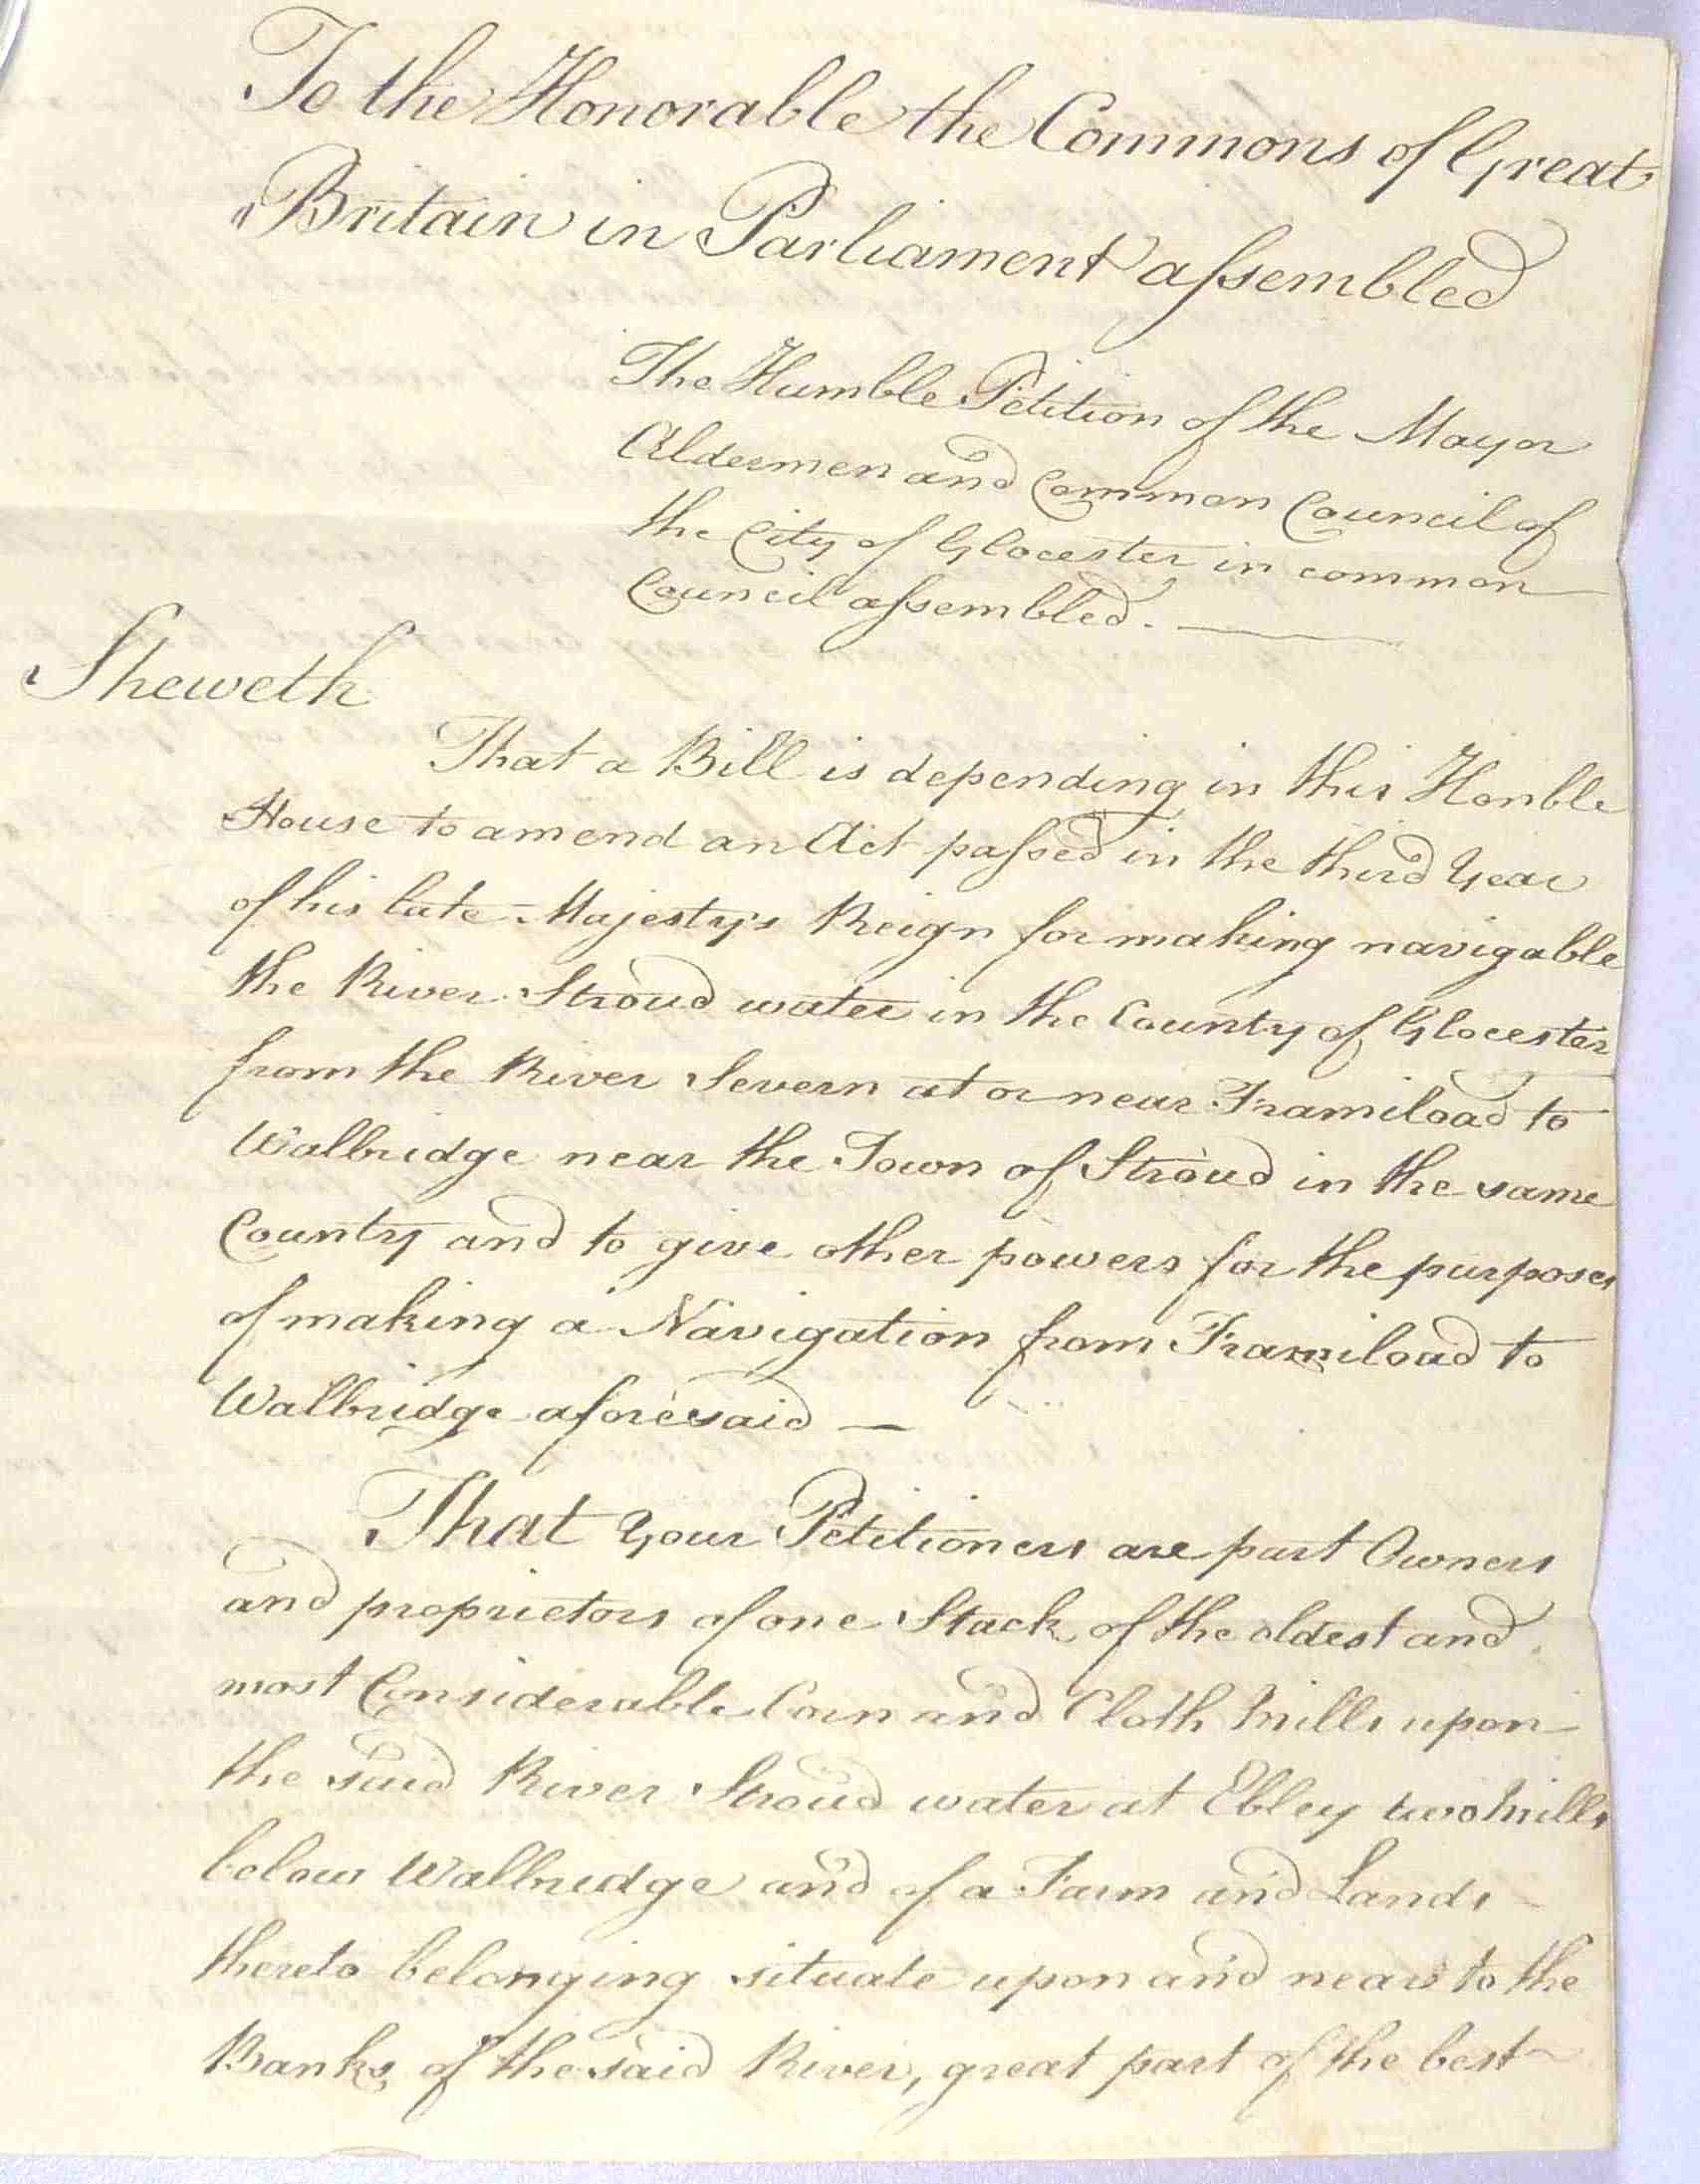 To the Honorable the Commons of Great
Britain in Parliament assembled
The Humble Petition of the Mayor
Aldermen and Common Council of
the City of Glocester in common
Council assembled.
Sheweth
That a Bill is depending in this Honble
House to amend an Act passed in the third Year
of his late Majesty's Reign for making navigable
the River Stroud water in the County of Glocester
from the River Severn at or near Framiload to
Walbridge near the Town of Stroud in the same
County and to give other powers for the purposes
of making a Navigation from Framiload to
Walbridge aforesaid —
That Your Petitioners are part Owners
and proprietors of one Stack of the oldest and
most Considerable Corn and Cloth Mills upon
the said River Stroud water at Ebley two Mills
below Walbridge and of a Farm and Lands
thereto belonging situate upon and near to the
Banks of the said River, great part of the best